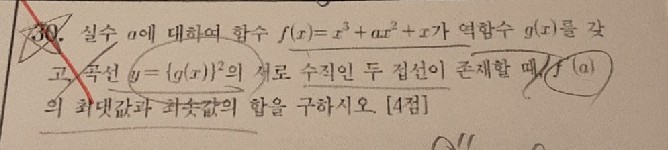 30. 실수 a에 대하여 함수 f(x)=x³+ax²+x가 역함수 g(x)를 갖
고, 곡선 y={g(x)}²의 서로 수직인 두 접선이 존재할 때, f(a)
의 최댓값과 최솟값의 합을 구하시오. [4점]